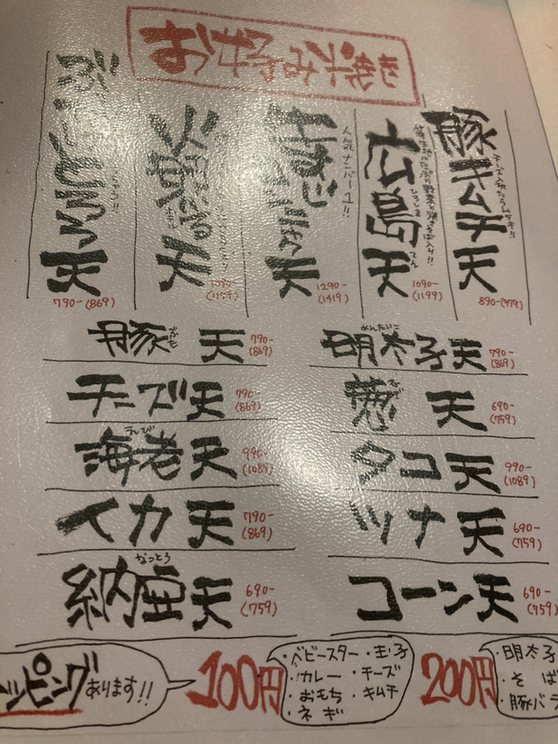 お好み焼
豚キムチ天
890-(979)
広島天
ひろしま てん
1090-
(1199)
人気ナンバー1!!
天
1290-
(1419)
天
1090-
(1199)
天
790-(869)
豚天
ぶた
790-
(869)
明太子天
めんたいこ
790-
(869)
チーズ天
790-
(869)
葱天
690-
(759)
海老天
えび
990-
(1089)
タコ天
990-
(1089)
イカ天
790-
(869)
ツナ天
690-
(759)
納豆天
なっとう
690-
(759)
コーン天
690-
(759)
ッピングあります!!
100円
・ベビースター・玉子
・カレー・チーズ
・おもち・キムチ
・ネギ
200円
・明太子
・そば
・豚バラ